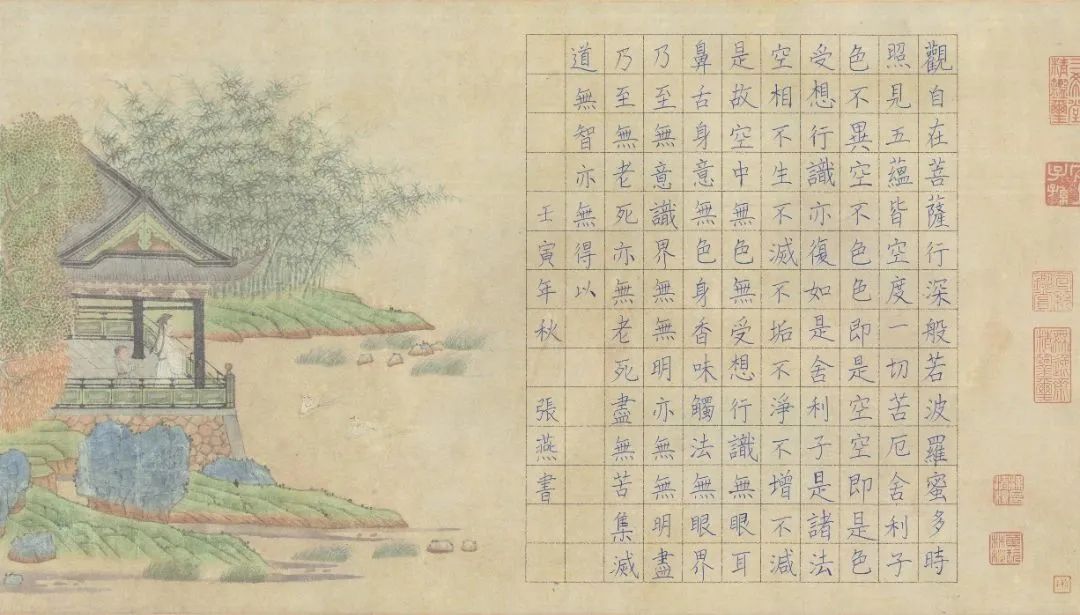 觀自在菩薩行深般若波羅蜜多時
照見五蘊皆空度一切苦厄舍利子
色不異空不色色即是空空即是色
受想行識亦復如是舍利子是諸法
空相不生不滅不垢不淨不增不減
是故空中無色無受想行識無眼耳
鼻舌身意無色身香味觸法無眼界
乃至無意識界無無明亦無無明盡
乃至無老死亦無老死盡無苦集滅
道無智亦無得以
壬寅年秋 張燕書